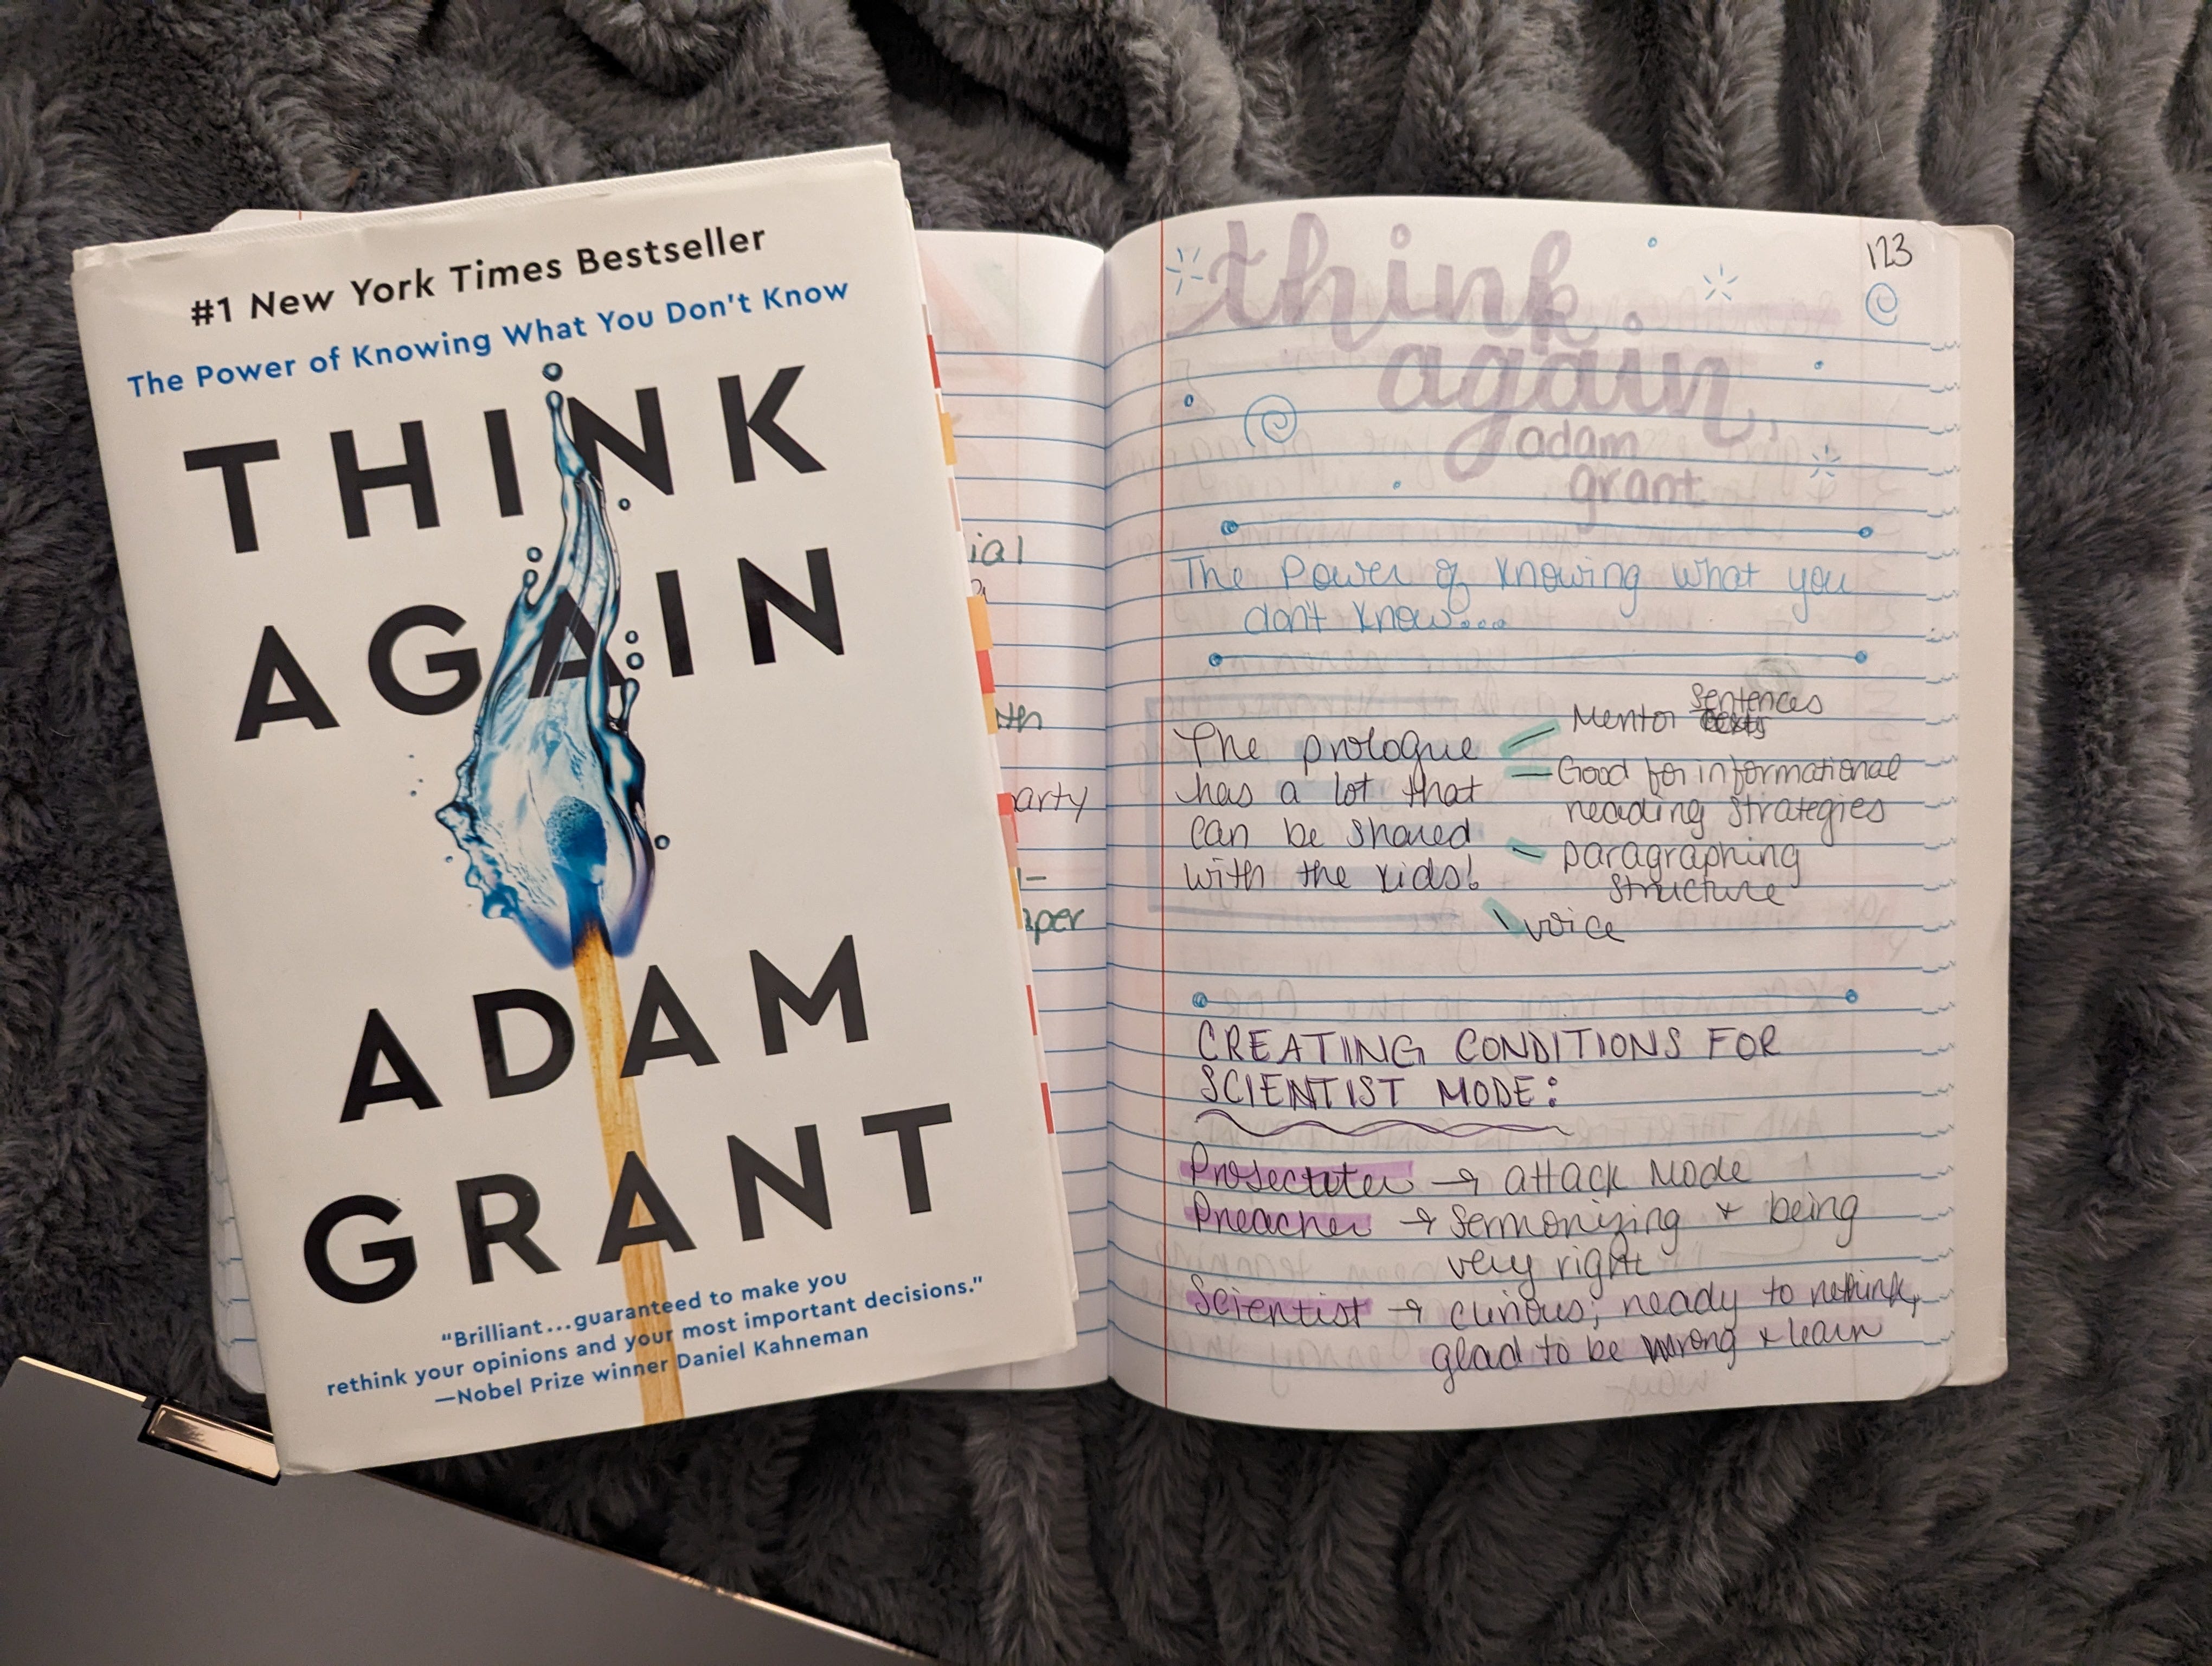 #1 New York Times Bestseller
The Power of Knowing What You Don't Know
THINK
AGAIN
ADAM
GRANT
"Brilliant...guaranteed to make you
rethink your opinions and your most important decisions."
—Nobel Prize winner Daniel Kahneman
ial
th
arty
aper
123
think
again,
adam
grant
The Power of Knowing what you
don't know...
The prologue
has a lot that
can be shared
with the kids!
Mentor sentences
— Good for informational
reading strategies
- paragraphing
structure
\ voice
CREATING CONDITIONS FOR
SCIENTIST MODE:
Prosecuter → attack mode
Preacher → sermonizing + being
very right
Scientist → curious; ready to rethink,
glad to be wrong + learn